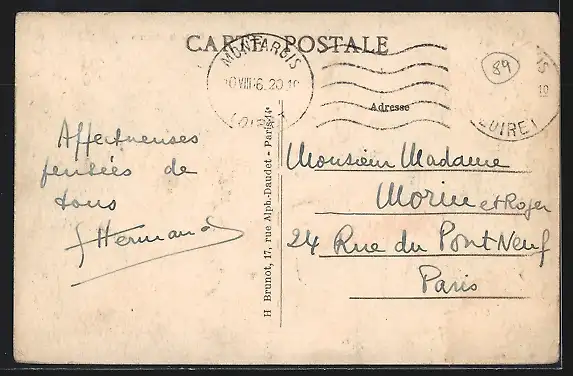 CARTE POSTALE
MONTARGIS
LOIRET
89
Adresse
LOIRET
Affectueuses
pensées de
tous
Hermand
H Brunot, 17, rue Alph.-Daudet - Paris-14e
Monsieur Madame
Morin et Roger
24 Rue du Pont Neuf
Paris